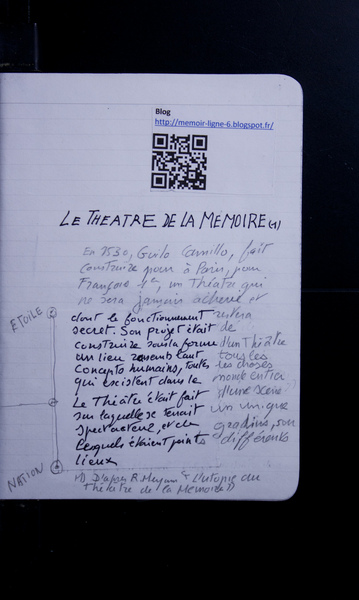 Blog
http://memoir-ligne-6.blogspot.fr/
LE THEATRE DE LA MEMOIRE (1)
En 1530, Guilo Camillo, fait
construire pour à Paris, pour
François 1er, un Théâtre qui
ne sera jamais achevé et
ETOILE
dont le fonctionnement restera
secret. Son projet était de
construire sous la forme d'un Théâtre
un lieu rassemblant tous les
concepts humains, toutes les choses
qui existent dans le monde entier
Le Théâtre était fait d'une scène
sur laquelle se tenait un unique
spectateur, et de gradins, son
lesquels étaient peints différents
lieux
NATION
(1) D'après R. "L'utopie du
Théâtre de la Mémoire"